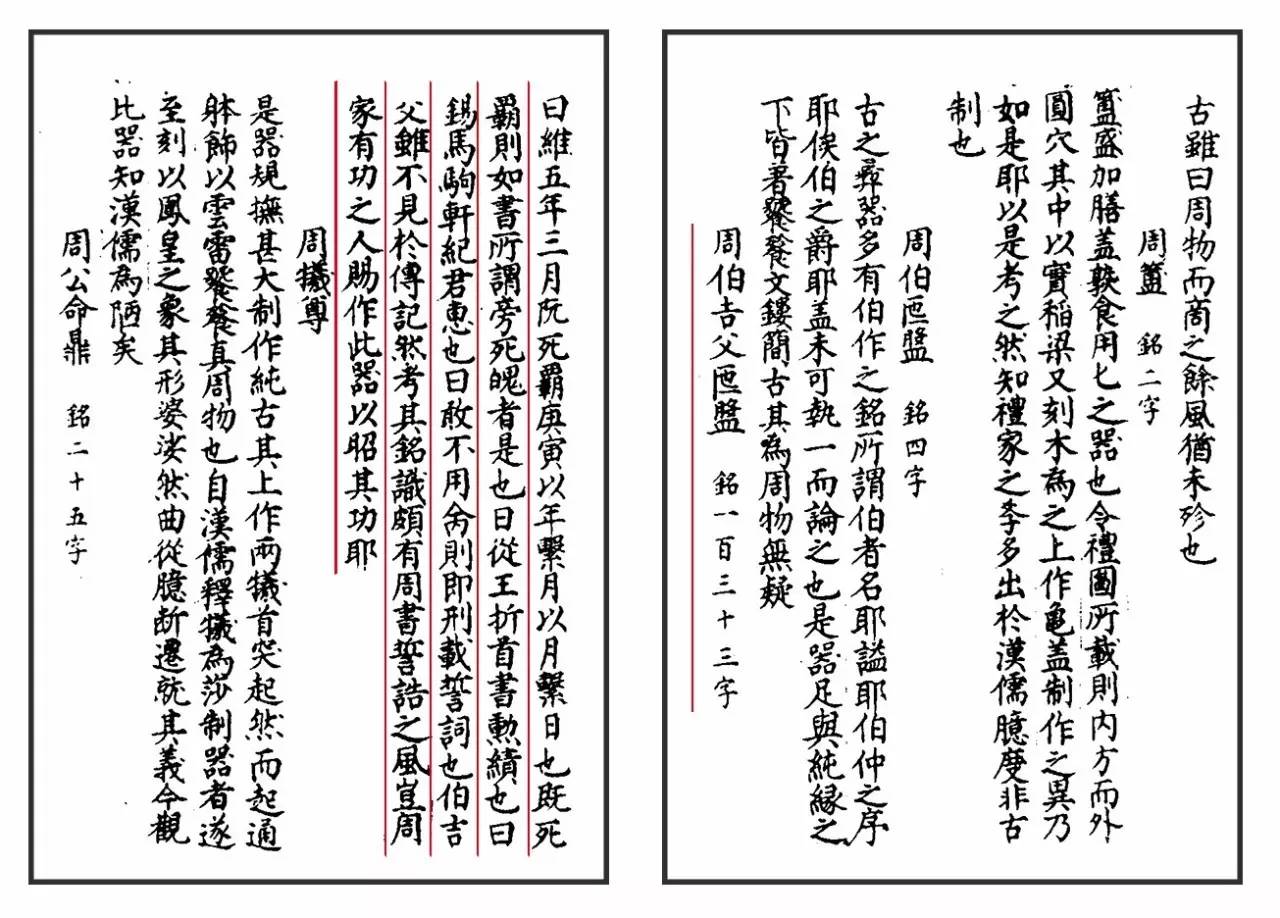 古雖曰周物而商之餘風猶未殄也
周簠 銘二字
簠盛加膳蓋簋食用匕之器也今禮圖所載則内方而外
圓穴其中以實稻梁又刻木為之上作龜蓋制作之異乃
如是耶以是考之然知禮家之學多出於漢儒臆度非古
制也
周伯匜盤 銘四字
古之彝器多有伯作之銘所謂伯者名耶謚耶伯仲之序
耶侯伯之爵耶蓋未可執一而論之也是器足與純緣之
下皆著饕餮文鏤簡古其為周物無疑
周伯吉父匜盤 銘一百三十三字
曰維五年三月既死霸庚寅以年繫月以月繫日也既死
霸則如書所謂旁死魄者是也曰從王折首書勲績也曰
錫馬駒軒紀君恵也曰敢不用命則即刑載誓詞也伯吉
父雖不見於傳記然考其銘識頗有周書誓誥之風豈周
家有功之人賜作此器以昭其功耶
周犧尊
是器規撫甚大制作純古其上作兩犧首突起然而起通
体飾以雲雷饕餮真周物也自漢儒釋犧為莎制器者遂
至刻以鳳皇之象其形婆娑然曲從臆斷遷就其義今觀
比器知漢儒為陋矣
周公命鼎 銘二十五字